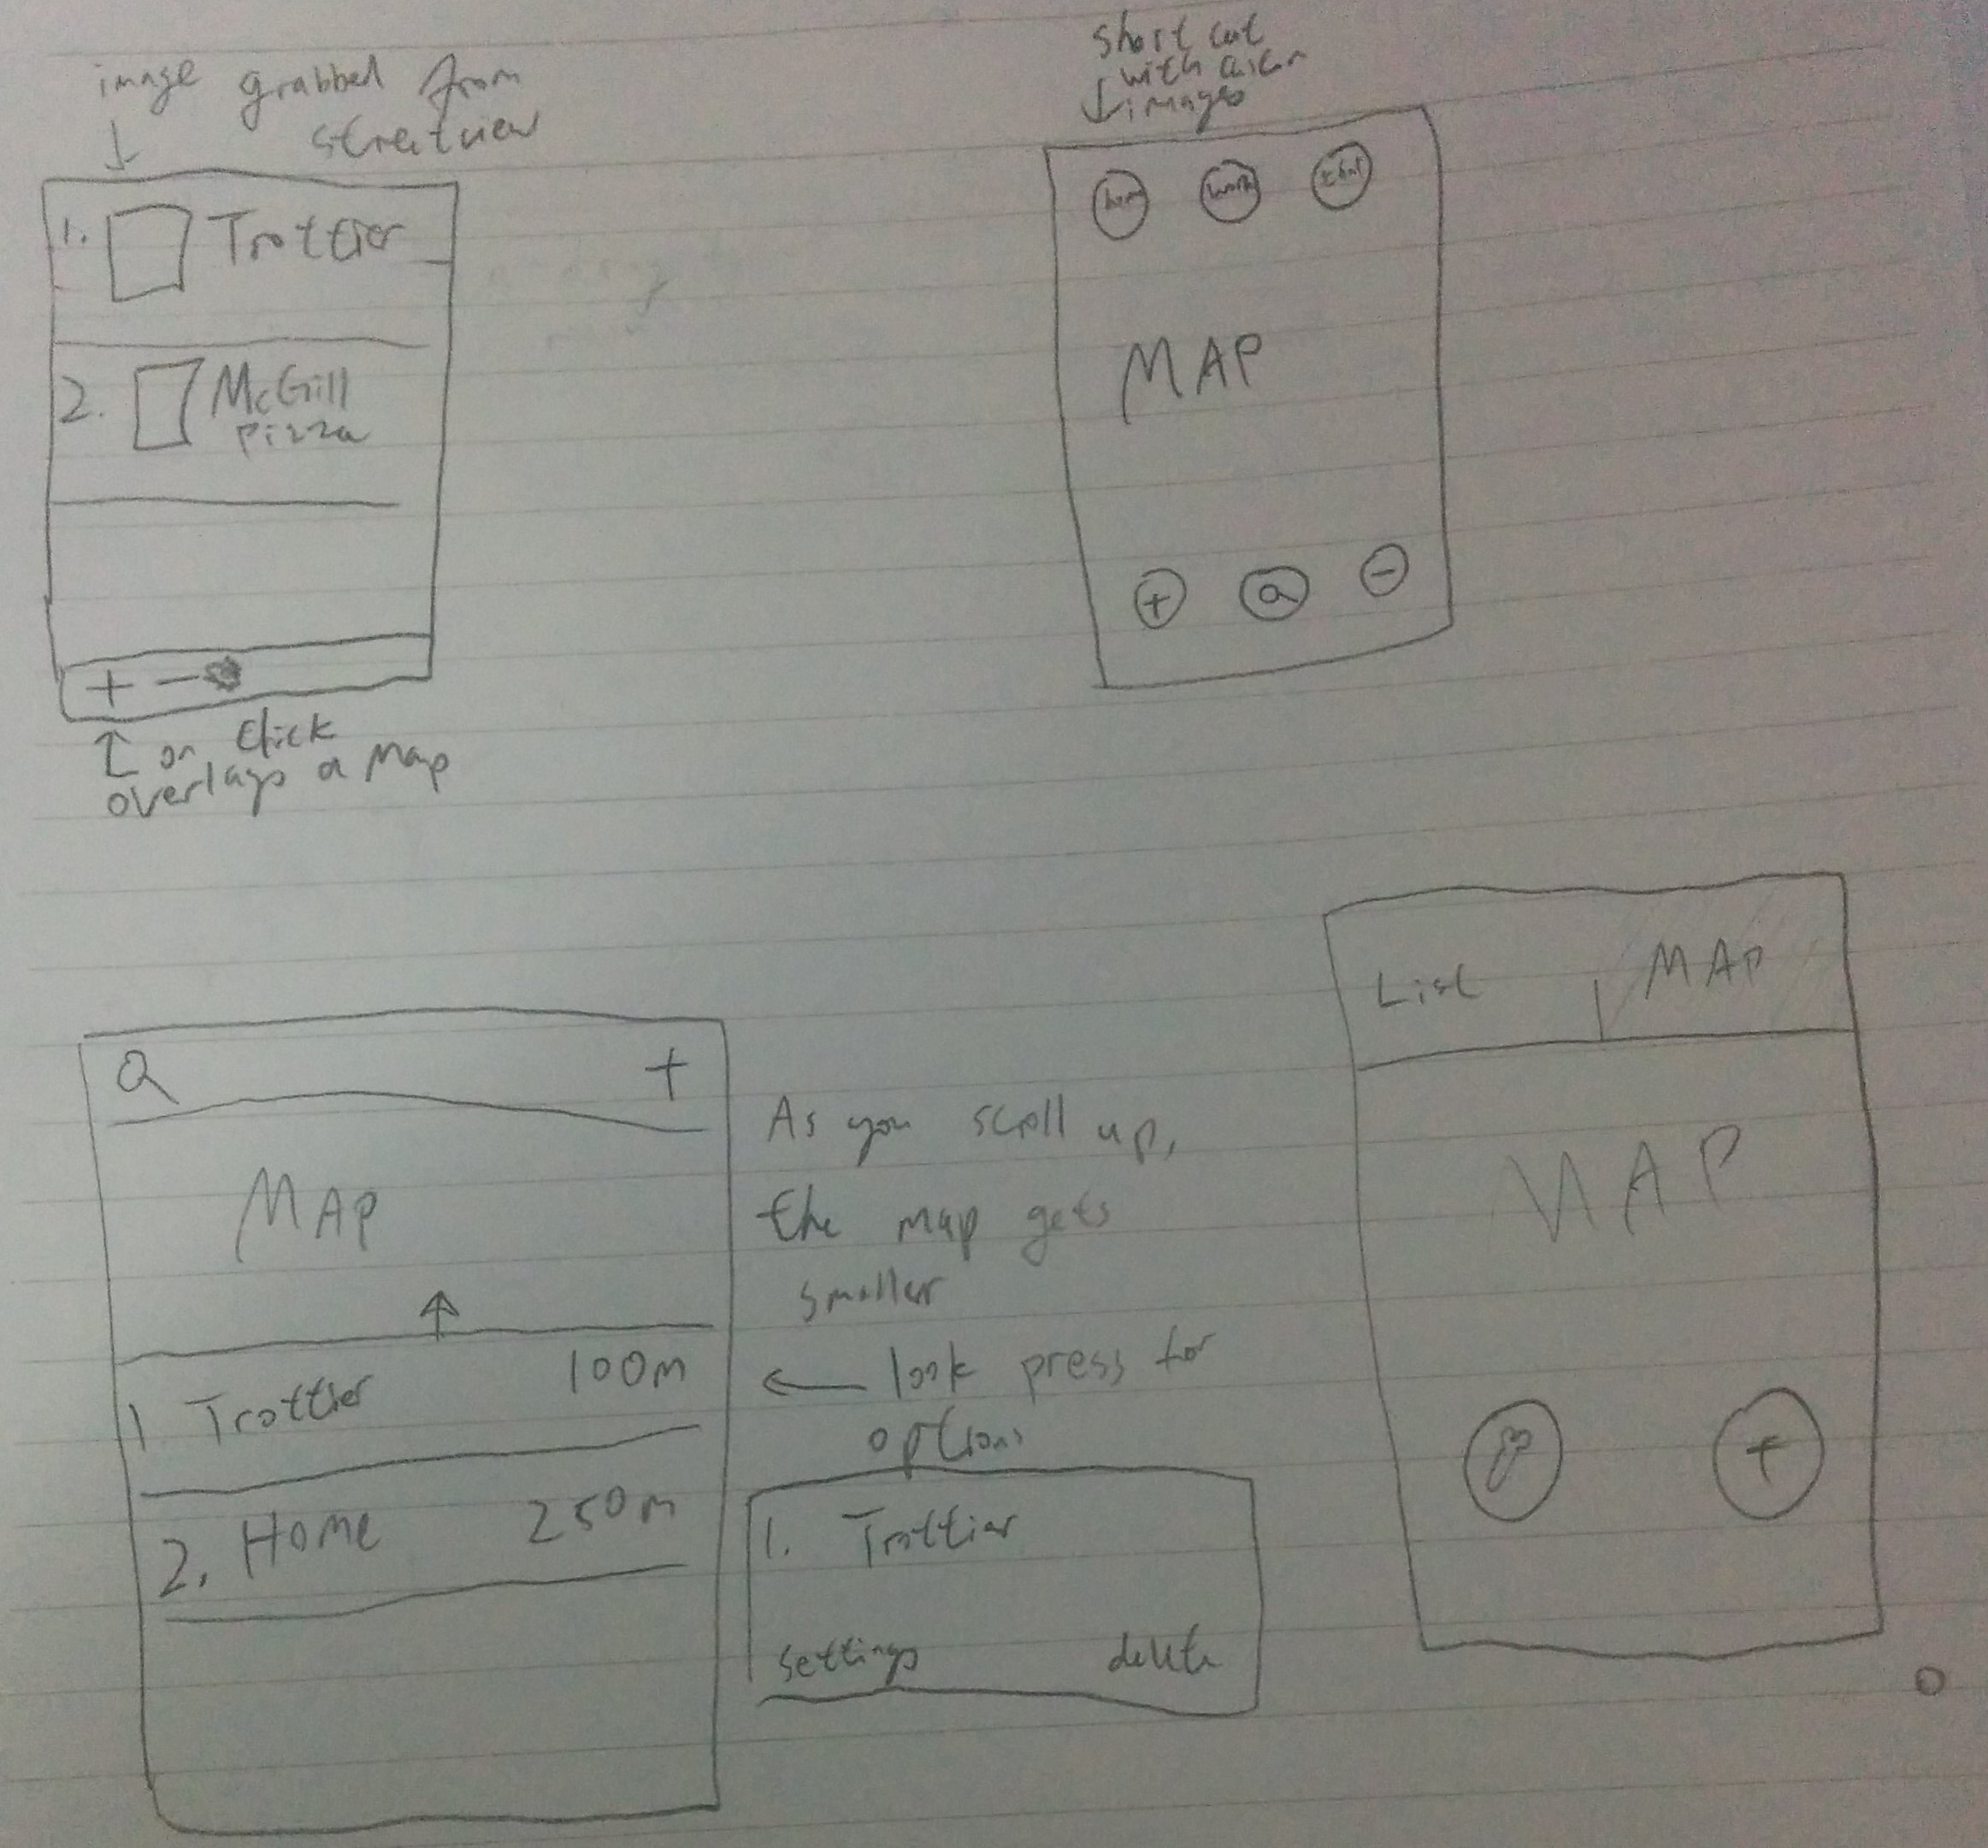 image grabbed from
streetview
1. Trottier
2. McGill
pizza
+ -
on click
overlays a map
short cut
with
images
home work
MAP
+ -
+
MAP
1 Trottier 100m
2. Home 250m
As you scroll up,
the map gets
smaller
look press for
options
1. Trottier
settings delete
List MAP
MAP
+